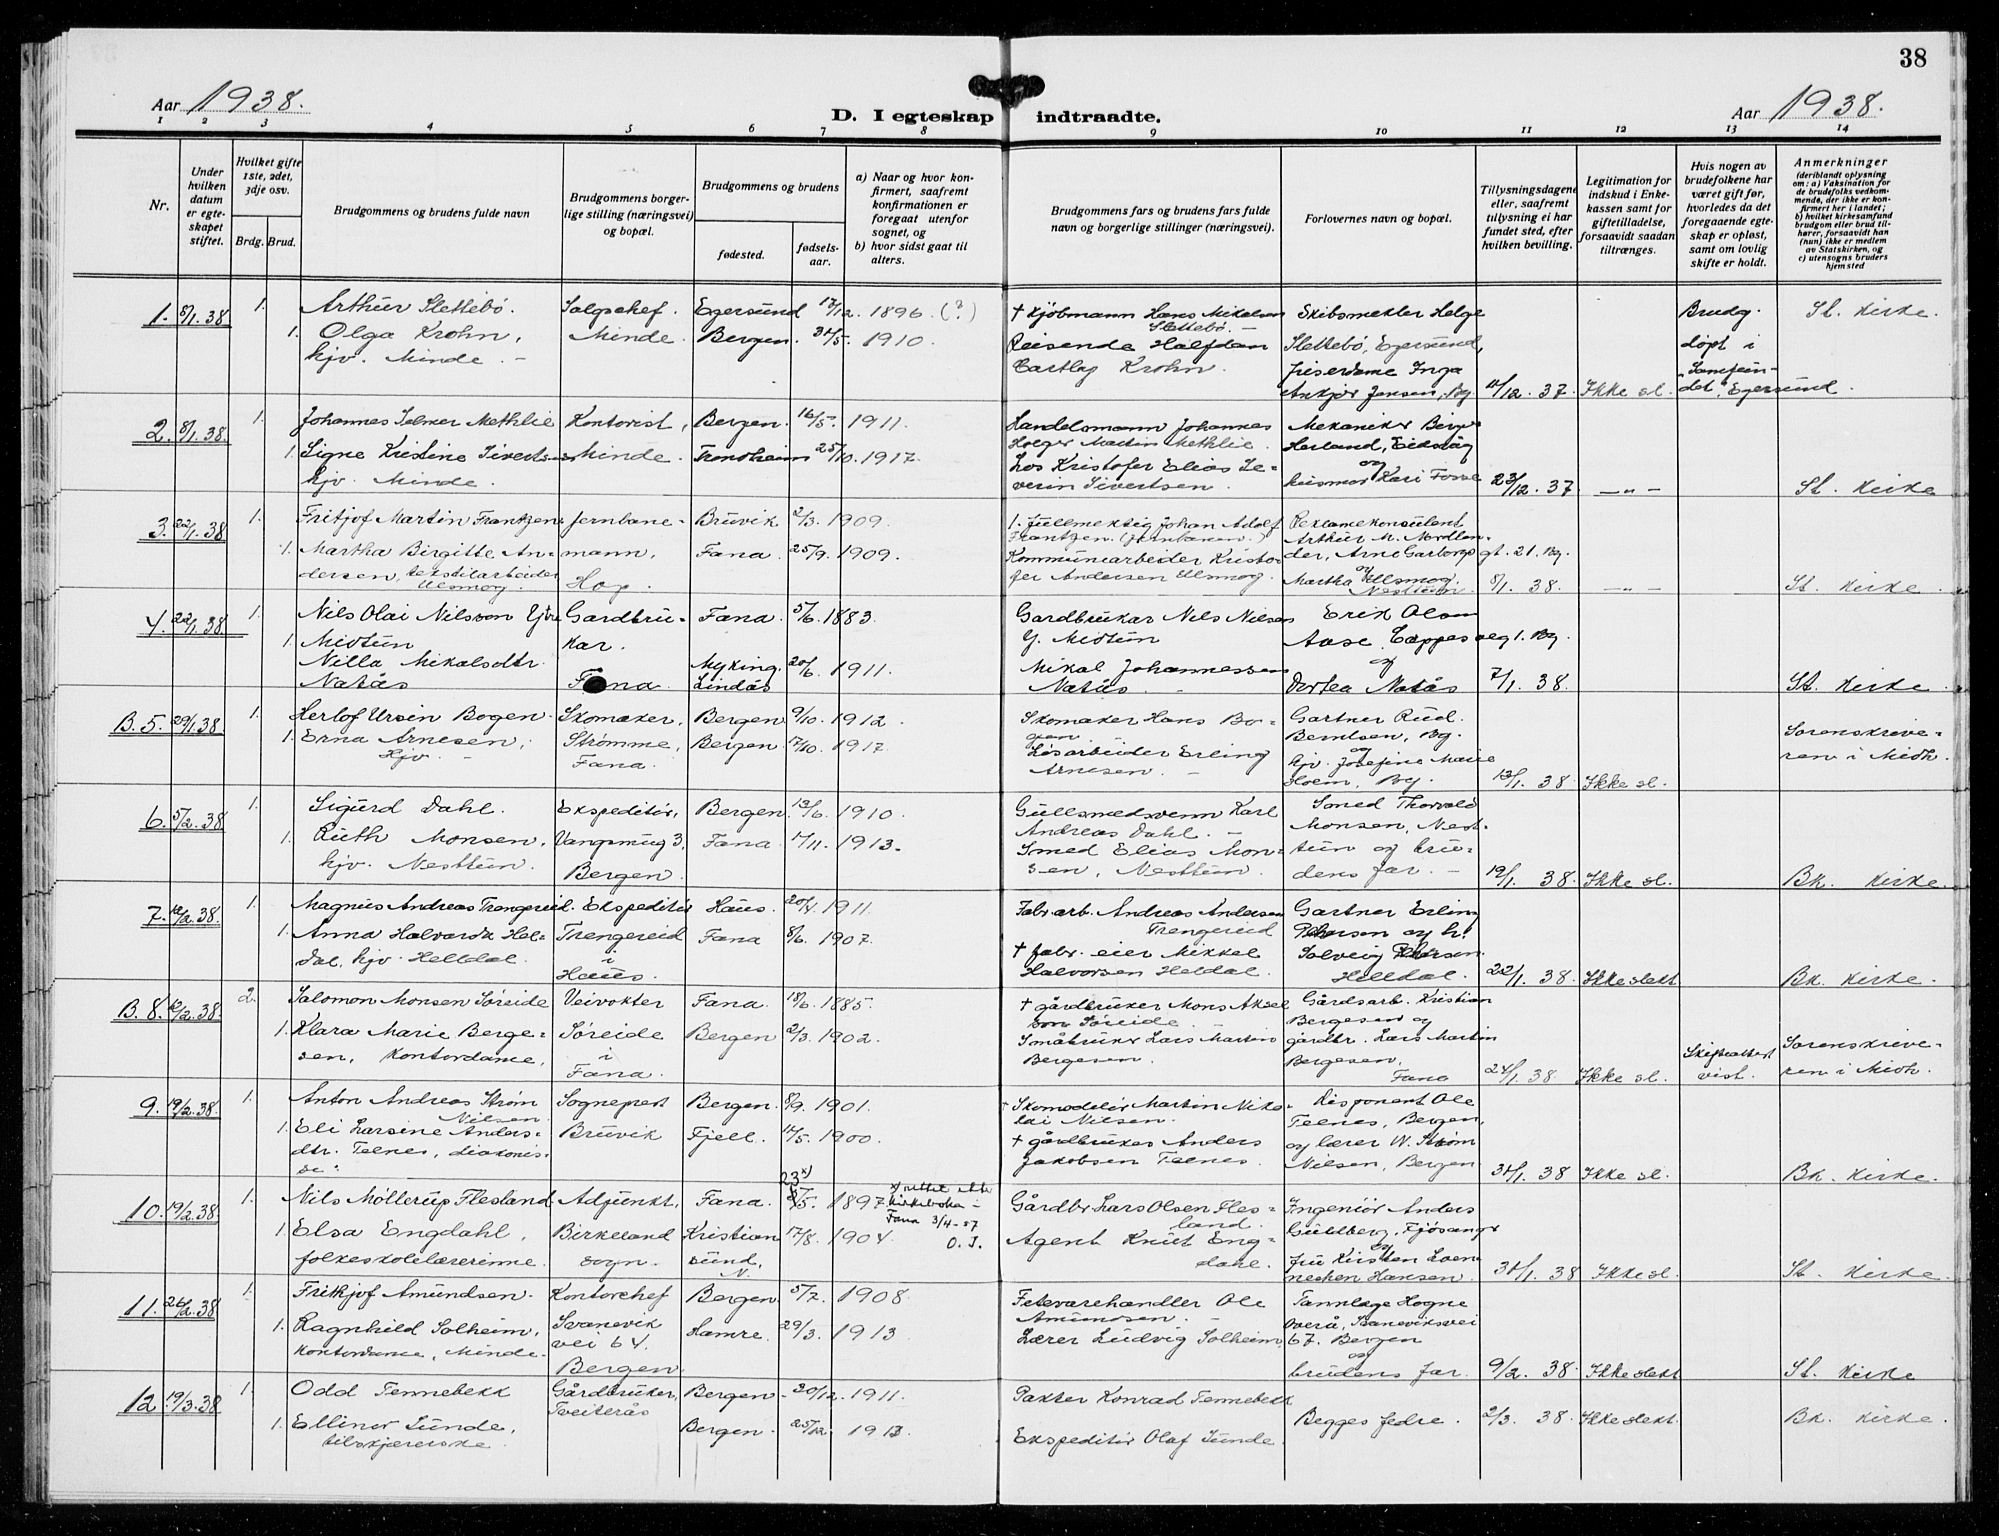 38
Aar 1938.
D. I egteskap indtraadte.
Aar 1938.
1 2 3 4 5 6 7 8 9 10 11 12 13 14
Nr.
Under hvilken datum er egteskapet stiftet.
Hvilket gifte 1ste, 2det, 3dje osv.
Brdg. Brud.
Brudgommens og brudens fulde navn
Brudgommens borgerlige stilling (næringsvei) og bopæl.
Brudgommens og brudens
fødested.
fødselsaar.
a) Naar og hvor konfirmert, saafremt konfirmationen er foregaat utenfor sognet, og
b) hvor sidst gaat til alters.
Brudgommens fars og brudens fars fulde navn og borgerlige stillinger (næringsvei).
Forlovernes navn og bopæl.
Tillysningsdagene eller, saafremt tillysning ei har fundet sted, efter hvilken bevilling.
Legitimation for indskud i Enkekassen samt for giftetilladelse, forsaavidt saadan tiltrænges.
Hvis nogen av brudefolkene har været gift før, hvorledes da det foregaaende egteskap er opløst, samt om lovlig skifte er holdt.
Anmerkninger
(deriblandt oplysning om: a) Vaksination for de brudefolks vedkommende, der ikke er konfirmert her i landet; b) hvilket kirkesamfund brudgom eller brud tilhører, forsaavidt han (hun) ikke er medlem av Statskirken, og c) utensogns bruders hjemsted
1. 8/1.38 1. Arthur Slettebø. Salgschef. Egersund 17/12. 1896 (?) † Kjøbmann Hans Mikalsen Slettebø. Skibsmekler Helge Slettebø, Egersund, Brudg. døpt i "Samfundet", Egersund. St. Kirke.
1. Olga Krohn, hjv. Minde. Minde. Bergen 31/5. 1910. Reisende Halfdan Cartlag Krohn. Friserdame Inga Ankjær Jensen, Bg 11/12. 37. Ikke sl.
2. 8/1.38. 1. Johannes Ialmer Methlie Kontorist, Bergen. 16/5. 1911. Handelsmann Johannes Holger Martin Methlie. Mekaniker Birger Herland, Eidsvåg og
1. Signe Kristine Sivertsen hjv. Minde. Minde. Trondheim 25/10. 1917. Los Kristofer Elias Severin Sivertsen. Kari Fosse 23/12. 37. —"— St. Kirke
3. 22/1.38 1. Fritjof Martin Frantzen Jernbanemann, Bruvik 2/3. 1909. Fullmektig Johan Adolf Frantzen. (Jernbanen.) Reklamekonsulent Arthur M. Nordlander, Arne Garborgs gt. 21. Bg. og
1. Martha Birgitte Andersen, tekstilarbeider Ulsmog. Hop. Fana. 25/9. 1909. Kommunearbeider Kristofer Andersen Ulsmog. Martha Ulsmog. Nesttun 8/1. 38. —"— St. Kirke
4. 22/1.38 1. Nils Olai Nilsson Ytre Midtun Gardbrukar. Fana. 5/6. 1883. Gardbrukar Nils Nilsen Y. Midtun Erik Olsen Aase, Cappes veg 1. Bg. og
1. Nilla Mikalsdtr. Natås Fana. Myking, Lindås 20/6. 1911. Mikal Johannessen Natås. Dortea Natås 7/1. 38. St. Kirke
B. 5. 29/1.38 1. Herlof Ursin Bogen. Skomaker, Bergen 9/10. 1912. Skomaker Hans Bogen. Gartner Rud. Berntsen, Bg. og Sorenskriveren i Midh.
1. Erna Arnesen, Hjv. Strømme, Fana. Bergen. 17/10. 1917. Løsarbeider Erling Arnesen. hjv. Josefine Marie Hoem, Bg. 13/1. 38. Ikke sl.
6. 5/2.38 1. Sigurd Dahl. Ekspeditør, Bergen. 13/6. 1910. Gullsmedsvenn Karl Andreas Dahl. Smed Thorvald Monsen, Nesttun og
1. Ruth Monsen, hjv. Nesttun. Vangsmug 3. Bergen. Fana. 17/11. 1913. Smed Elias Monsen, Nesttun. brudens far. 19/1. 38. Ikke sl. Bk. Kirke.
7. 12/2.38. 1. Magnus Andreas Trengereid. Ekspeditør Haus. 20/4. 1911. Fabr.arb. Andreas Andersen Trengereid Gartner Erling
1. Anna Halvarda Heldal, hjv. Helldal. Trengereid i Haus. Fana 8/6. 1907. † fabr. eier Mikkel Halvorsen Heldal. Solveig Helldal. 22/1. 38. Ikke slekt Bk. Kirke.
B. 8. 12/2.38. 2. Salomon Monsen Søreide Veivokter Fana. 18/6. 1885. † gårdbruker Mons Akselson Søreide. Gårdsarb. Kristian Bergesen og
1. Klara Marie Bergesen, kontordame, Søreide i Fana. Bergen 2/3. 1902. Småbruker Lars Martin Bergesen. gårdbr. Lars Martin Bergesen, Fana 24/1. 38. Ikke sl. Skifteattest vist. Sorenskriveren i Midh.
9. 19/2.38. 1. Anton Andreas Strøm Nilsen. Sogneprest Bergen. 8/9. 1901. † Skomodelør Martin Nikolai Nilsen. Disponent Ole Teenes, Bergen,
1. Eli Larsine Andersdtr. Teenes, diakonisse. Bruvik Fjell. 14/5. 1900. † gårdbruker Anders Jakobsen Teenes. og lærer W. Strøm Nielsen, Bergen 31/1. 38 Ikke sl. Bk. Kirke.
10. 19/2.38. 1. Nils Møllerup Flesland Adjunkt, Fana. 23x)/5. 1897 x) rettet etter kirkeboka - Fana 3/4-57 O. J. Gårdbr. Lars Olsen Flesland. Ingeniør Anders Guldberg, Fjøsanger og
1. Elsa Engdahl, folkeskolelærerinne. Birkeland sogn. Kristiansund, N. 17/8. 1904. Agent Knut Engdahl. fru Kirsten Loennechen Hansen. 31/1. 38 Ikke sl. St. Kirke
11. 26/2.38 1. Fritkjof Amundsen. Kontorchef Bergen. 5/7. 1908. Fetevarehandler Ole Amundsen. Tannlæge Hogne Overå, Svaneviksvei 67. Bergen og
1. Ragnhild Solheim, kontordame, Minde. Svanevik vei 64. Bergen. Hamre. 29/3. 1913. Lærer Ludvig Solheim, brudens far. 9/2. 38 Ikke slekt St. Kirke
12. 19/3.38 1. Odd Tennebekk Gårdbruker, Tveiterås Bergen 30/12. 1911. Pakter Konrad Tennebekk
1. Ellinor Sunde, tilskjærerske. Bergen. 25/12. 1913. Ekspeditør Olaf Sunde. Begges fedre. 2/3. 38. Ikke slekt. Bk. Kirke.